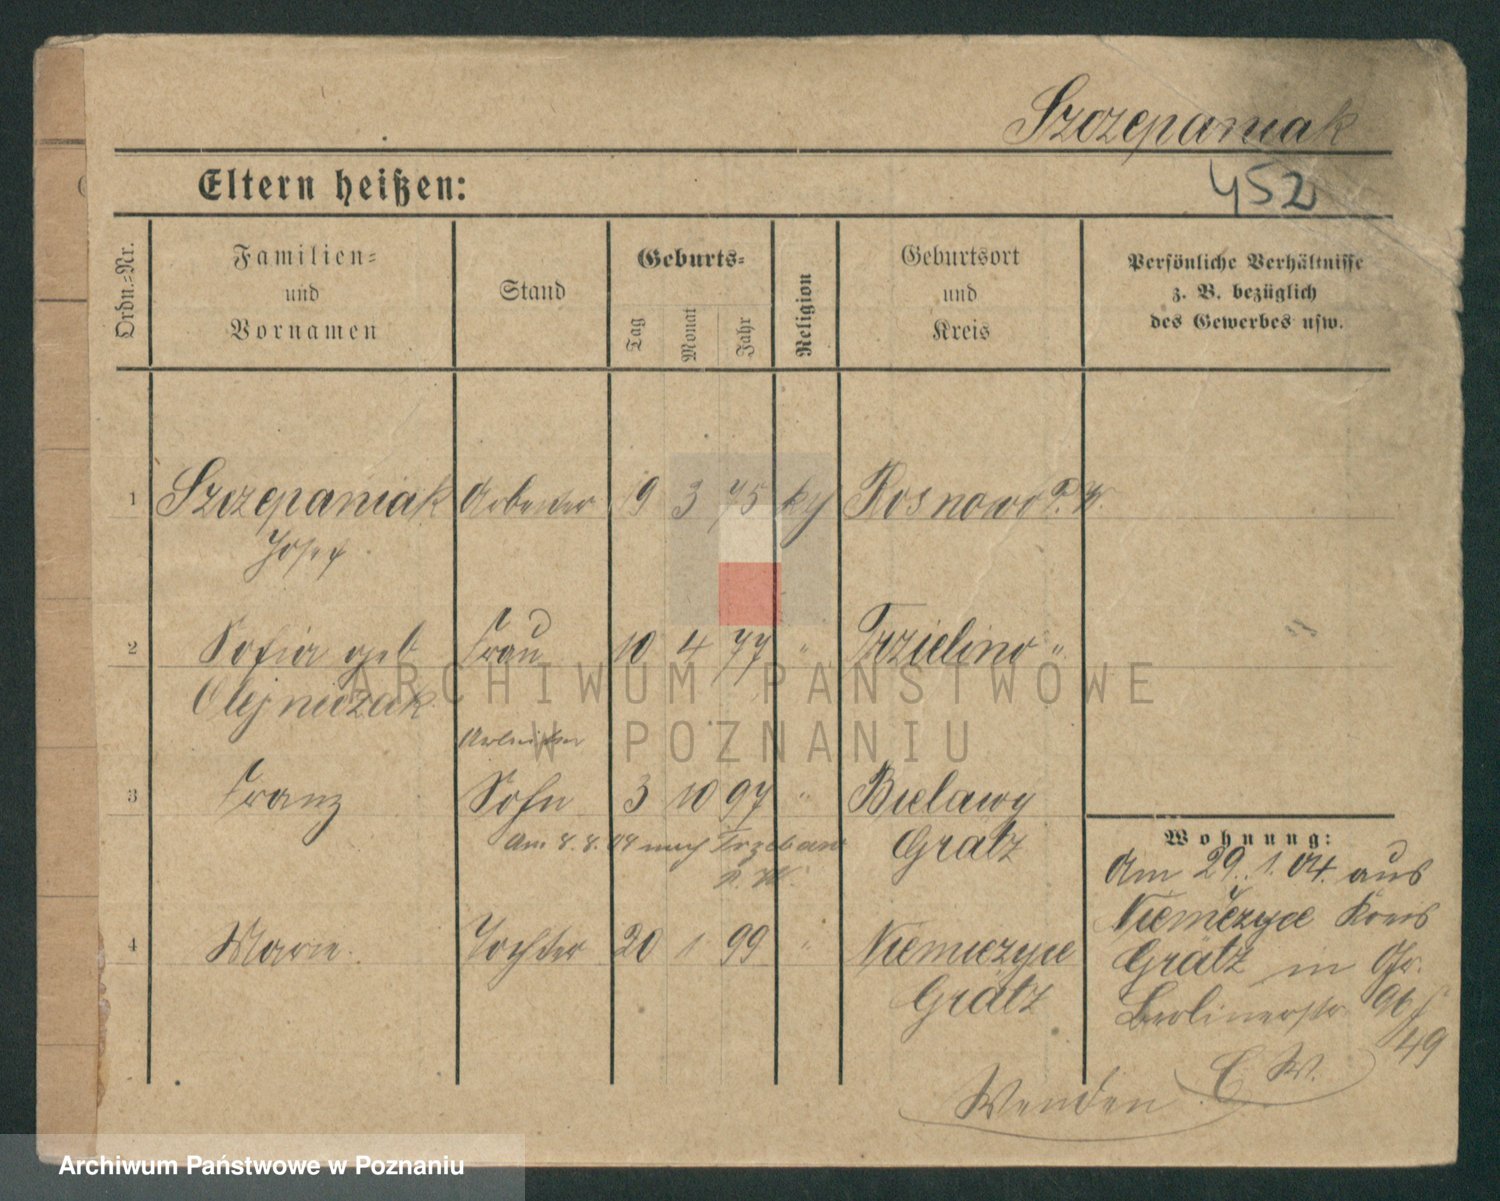 Szczepaniak
452
Eltern heißen:
Ordn.=Nr.
Familien=
und
Vornamen
Stand
Geburts=
Tag
Monat
Jahr
Religion
Geburtsort
und
Kreis
Persönliche Verhältnisse
z. B. bezüglich
des Gewerbes usw.
1 Szczepaniak Arbeiter 19 3 75 Rosnowo P. W.
Josef
2 Sofia geb Frau 10 4 77 " Trzielino "
Olejniczak
Arbeiter
3 Franz Sohn 3 10 97 " Bielawy
Grätz
Am 8.8.08 nach
P. W.
4 Marie Tochter 20 1 99 " Niemiczyce
Grätz
Wohnung:
Am 29.1.04. aus
Niemczyce Kreis
Grätz in
Berlinerstr 96
49
Wenden
C. W.
ARCHIWUM PAŃSTWOWE
W POZNANIU
Archiwum Państwowe w Poznaniu